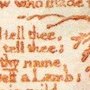 who made
tell thee,
tell thee:
thy name,
self a Lamb: